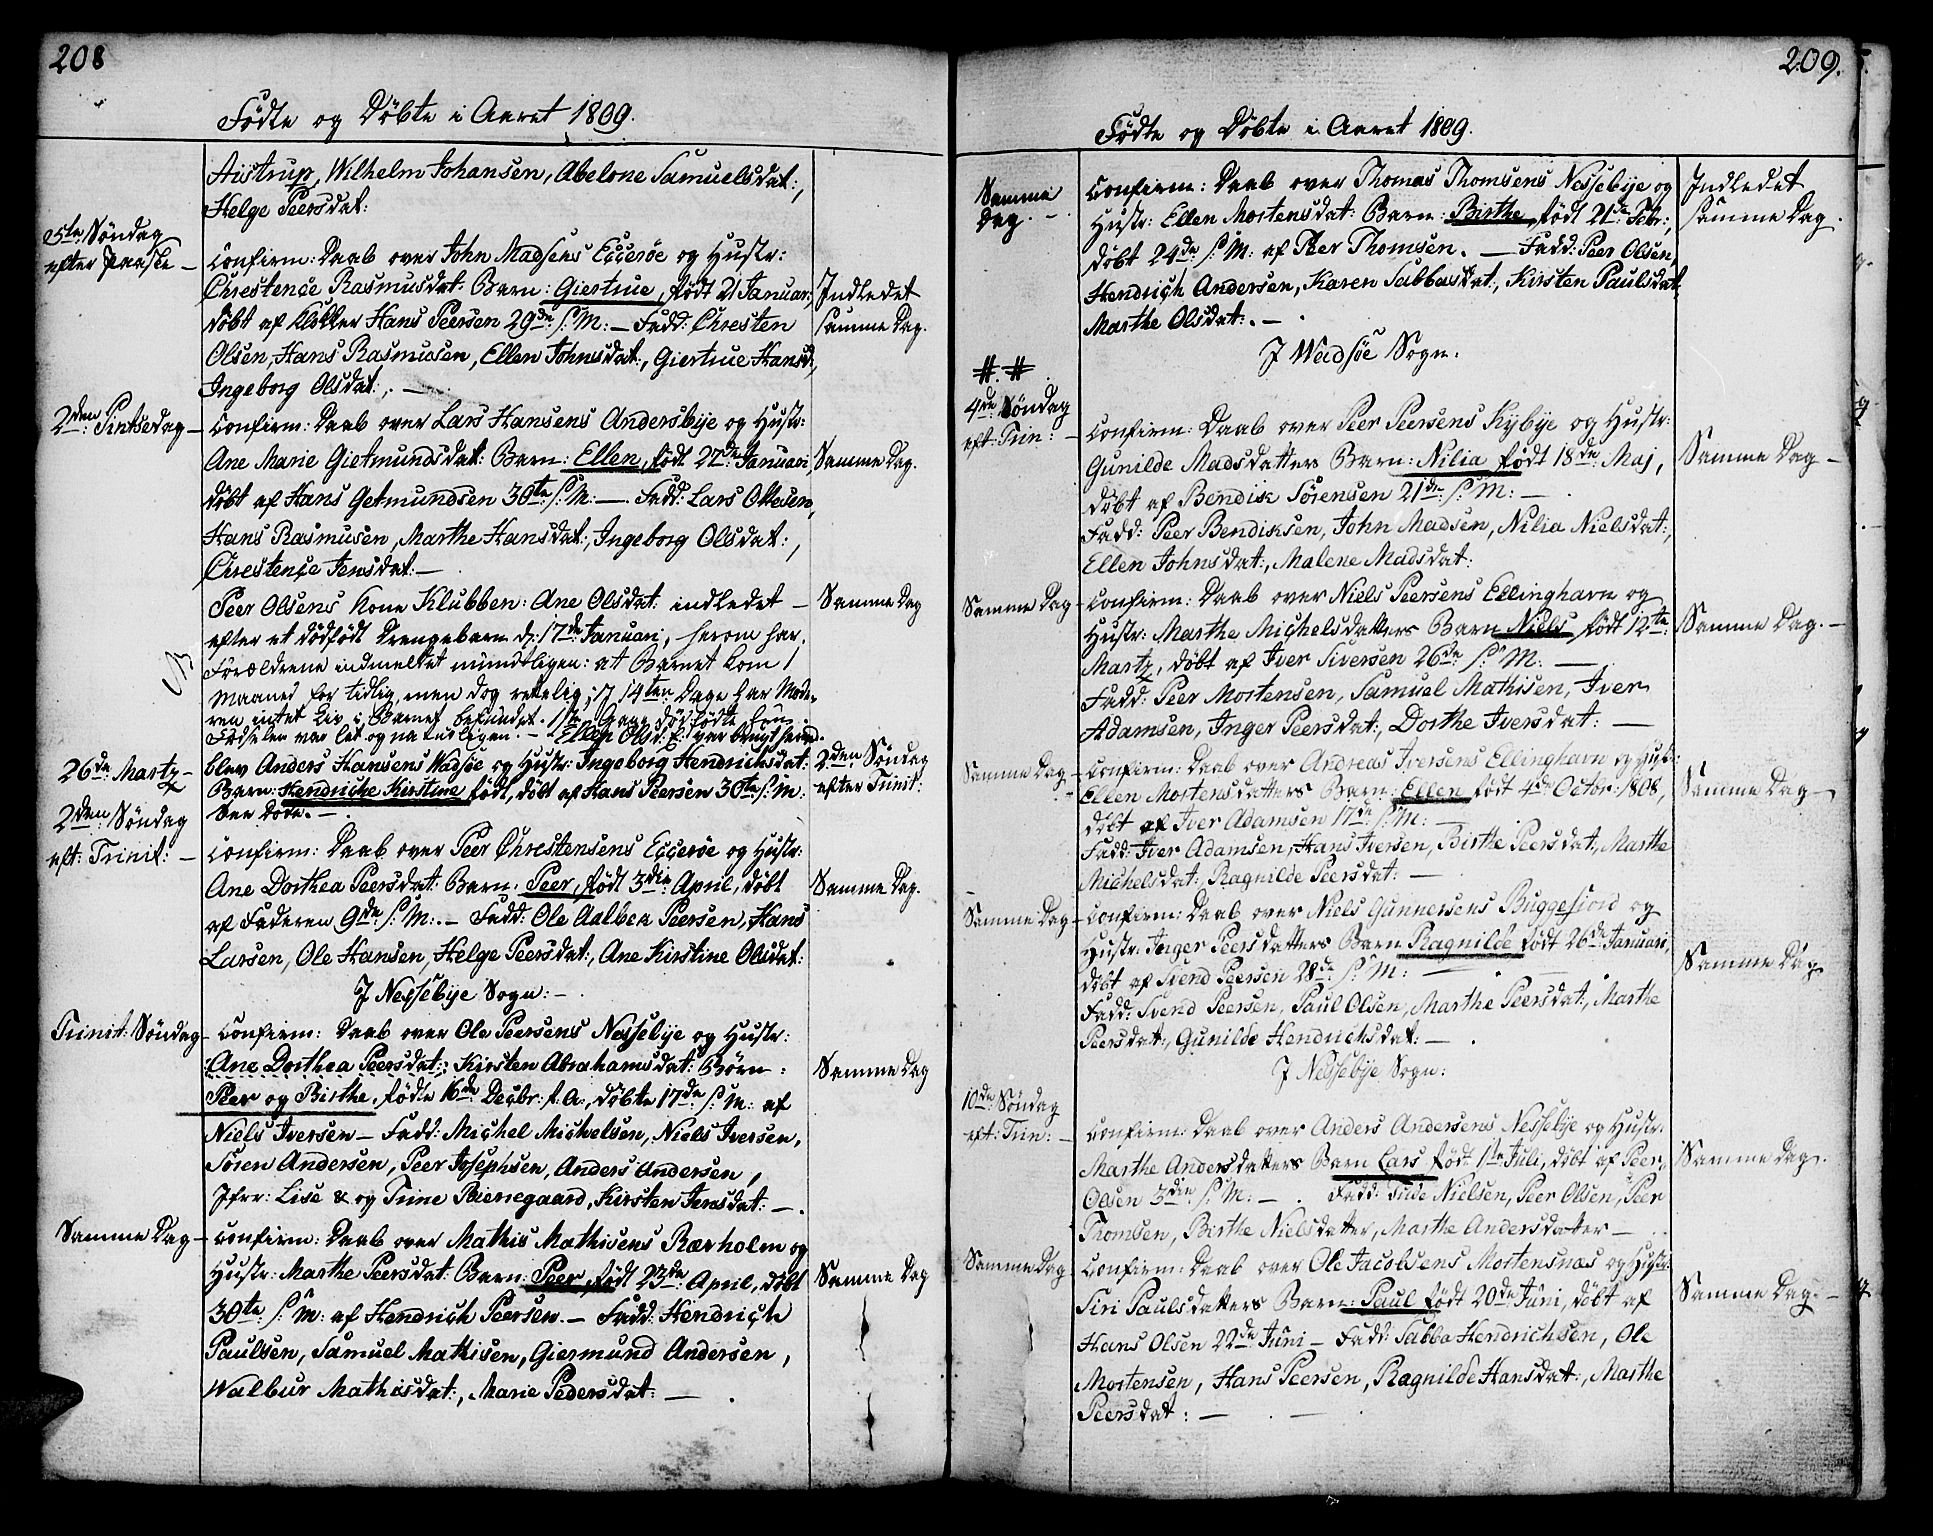 208
Fødte og Døbte i Aaret 1809.
Austrup, Wilhelm Johansen, Abelone Samuelsdat:,
Helge Peersdat:
5te Søndag
efter Paaske –
Confirm: Daab over John Madsens Eccerøe og Hustr:
Chrestençe Rasmusdat: Barn: Giertrue, født 21 Januar:,
døbt af Klokker Hans Peersen 29de s: M: – Fadd: Chresten
Olsen, Hans Rasmusen, Ellen Johnsdat:, Giertrue Hansd:,
Ingeborg Olsdat:, –
Indledet
samme Dag.
2den Pintsedag –
Confirm: Daab over Lars Hansens Andersbye og Hustr:
Ane Marie Gietmundsdat: Barn: Ellen, født 27de Januari,
døbt af Hans Getmundsen 30te s: M: – Fadd: Lars Ottesen,
Hans Rasmusen, Marthe Hansdat:, Ingeborg Olsdat:,
Chrestençe Jensdat: –
Samme Dag.
Peer Olsens Kone Klubben: Ane Olsdat: indledet –
efter et dødfødt Drengebarn d: 17de Januari, herom har
Forældrene indmeldet mundtligen: at Barnet kom 1
Maaned for tidlig, men dog retelig; i 14ten Dage har Mode-
ren intet Liv i Barnet befundet. 1ste Gang dødfødte hun.
Fødselen var let og naturligen. – Ellen Olsd: var brugt herved.
Samme Dag
26de Martz –
blev Anders Hansens Wadsøe og Hustr: Ingeborg Hendrichsdat:
Barn: Hendriche Kirstine født, døbt af Hans Peersen 30te s: M:
See Døde. –
2den Søndag
efter Trinit:
2den Søndag
eft: Trinit: –
Confirm: Daab over Peer Chrestensens Eccerøe og Hustr:
Ane Dorthea Peersdat: Barn: Peer, født 3die April, døbt
af Faderen 9de s: M: – Fadd: Ole Aalben Peersen, Hans
Larsen, Ole Hansen, Helge Peersdat:, Ane Kirstine Olsdat:
Samme Dag.
I Nessebye Sogn: –
Trinit: Søndag –
Confirm: Daab over Ole Peersens Nessebye og Hustr:
Ane Dorthea Peersdat: Kirsten Abrahamsdat: Børn:
Peer og Birthe, fødte 16de Decbr: f. A:, døbte 17de s: M: af
Niels Iversen – Fadd: Michel Michelsen, Niels Iversen,
Søren Andersen, Peer Josephsen, Anders Andersen,
Jfrr: Lise & og Trine Bierregaard, Kirsten Jensdat: –
Samme Dag
Samme Dag –
Confirm: Daab over Mathis Mathisens Rærholm og
Hustr: Marthe Peersdat: Barn: Peer, født 23de April, døbt
30te s: M: af Hendrich Peersen – Fadd: Hendrich
Paulsen, Samuel Mathisen, Giermund Andersen,
Walbur Mathisdat:, Marie Pedersdat: –
Samme Dag
209.
Fødte og Døbte i Aaret 1809.
Samme
Dag. –
Confirm: Daab over Thomas Thomsens Nessebye og
Hustr: Ellen Mortensdat: Barn: Birthe, født 21de Febr:,
døbt 24de s: M: af Peer Thomsen. – Fadd: Peer Olsen,
Hendrich Andersen, Karen Sabbasdat:, Kirsten Paulsdat:
Marthe Olsdat: –
Indledet
samme Dag.
I Wadsøe Sogn.
#. #.
4de Søndag
eft: Trin: –
Confirm: Daab over Peer Peersens Kybye og Hustr:
Gunilde Madsdatters Barn: Nilia født 18de Maj,
døbt af Bendik Sørensen 21de s: M: –
Fadd: Peer Bendiksen, John Madsen, Nilia Nielsdat:,
Ellen Johnsdat:, Malene Madsdat:
Samme Dag –
Samme Dag –
Confirm: Daab over Niels Peersens Ellinghavn og
Hustr: Marthe Michelsdatters Barn Niels født 12te
Martz, døbt af Iver Siversen 26de s: M: –
Fadd: Peer Mortensen, Samuel Mathisen, Iver
Adamsen, Inger Peersdat:, Dorthe Iversdat: –
Samme Dag. –
Samme Dag –
Confirm: Daab over Andreas Iversens Ellinghavn og Hust:
Ellen Mortensdatters Barn: Ellen født 4de Octbr: 1808,
døbt af Iver Adamsen 17de s: M: –
Fadd: Iver Adamsen, Hans Iversen, Birthe Peersdat:, Marthe
Michelsdat:, Ragnilde Peersdat: –
Samme Dag –
Samme Dag –
Confirm: Daab over Niels Gunnersens Buggefiord og
Hustr: Inger Peersdatters Barn Ragnilde født 26de Januari,
døbt af Svend Peersen 28de s: M: –
Fadd: Svend Peersen, Paul Olsen, Marthe Peersdat:, Marthe
Peersdat:, Gunilde Hendrichsdat: –
Samme Dag
I Nessebye Sogn:
10de Søndag
eft: Trin: –
Confirm: Daab over Anders Andersens Nessebye og Hustr:
Marthe Andersdatters Barn Lars født 1ste Juli, døbt af Peer
Olsen 3die s: M: – Fadd: Tude Nielsen, Peer Olsen, Peer
Thomsen, Birthe Nielsdatter, Marthe Andersdatter –
Samme Dag.
Samme Dag
Confirm: Daab over Ole Jacobsens Mortensnæs og Hustr:
Siri Paulsdatters Barn: Paul født 20de Juni, døbt af
Hans Olsen 22de Juni – Fadd: Sabba Hendrichsen, Ole
Mortensen, Hans Peersen, Ragnilde Hansdat:, Marthe
Peersdat: –
Samme Dag. –